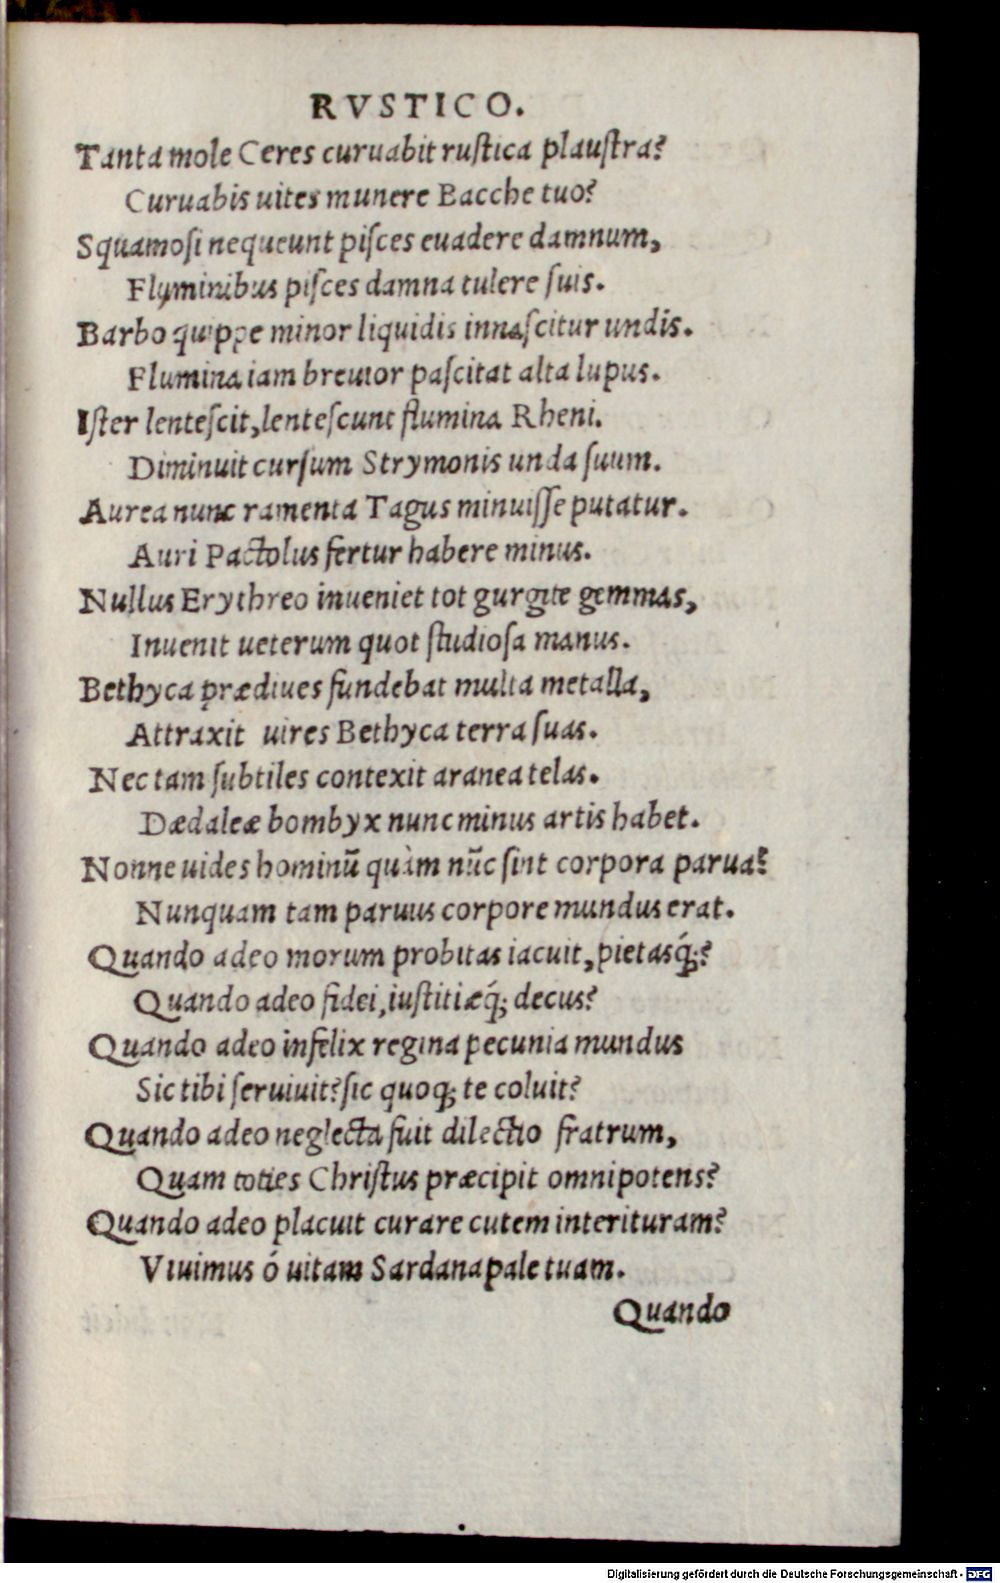 RVSTICO.
Tanta mole Ceres curuabit rustica plaustra?
Curuabis uites munere Bacche tuo?
Squamosi nequeunt pisces euadere damnum,
Fluminibus pisces damna tulere suis.
Barbo quippe minor liquidis innascitur undis.
Flumina iam breuior pascitat alta lupus.
Ister lentescit, lentescunt flumina Rheni.
Diminuit cursum Strymonis unda suum.
Aurea nunc ramenta Tagus minuisse putatur.
Auri Pactolus fertur habere minus.
Nullus Erythreo inueniet tot gurgite gemmas,
Inuenit ueterum quot studiosa manus.
Bethyca prædiues fundebat multa metalla,
Attraxit uires Bethyca terra suas.
Nec tam subtiles contexit aranea telas.
Dædaleæ bombyx nunc minus artis habet.
Nonne uides hominū quàm nūc sint corpora parua?
Nunquam tam paruus corpore mundus erat.
Quando adeo morum probitas iacuit, pietasq́;?
Quando adeo fidei, iustitiæq́; decus?
Quando adeo infelix regina pecunia mundus
Sic tibi seruiuit? sic quoq; te coluit?
Quando adeo neglecta fuit dilectio fratrum,
Quam toties Christus præcipit omnipotens?
Quando adeo placuit curare cutem interituram?
Viuimus ó uitam Sardanapale tuam.
Quando
Digitalisierung gefördert durch die Deutsche Forschungsgemeinschaft - DFG